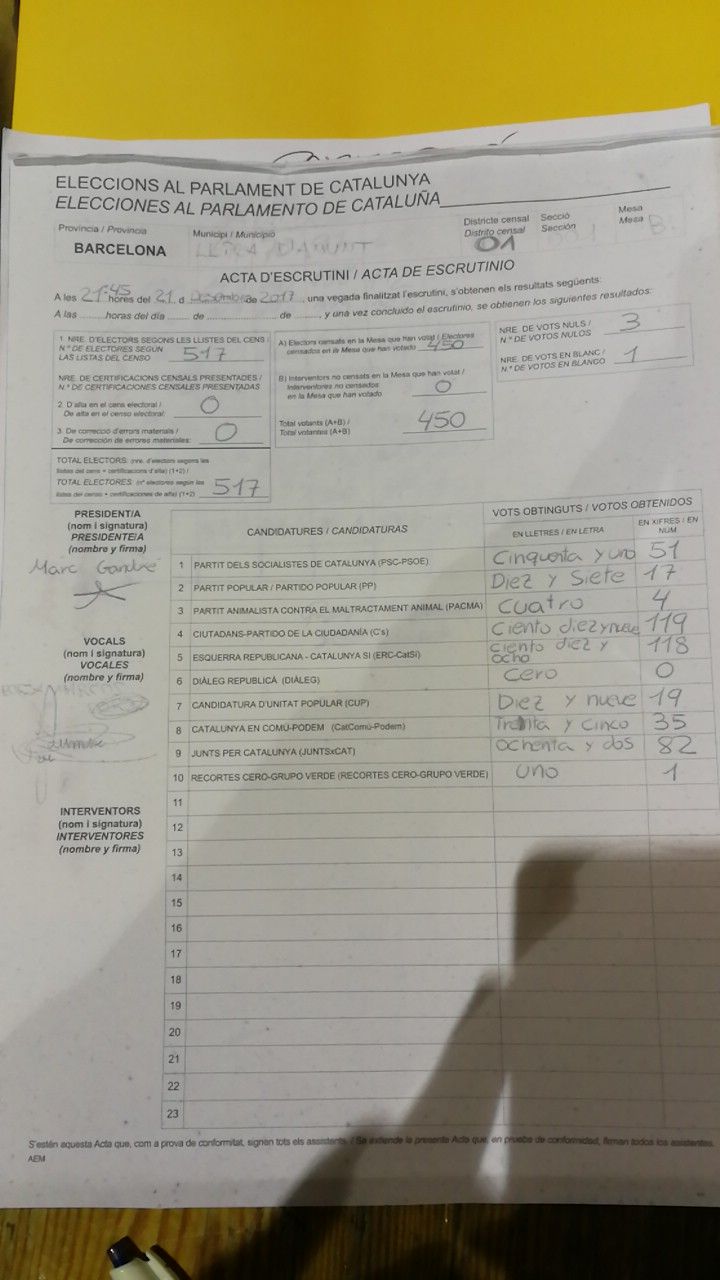 ELECCIONS AL PARLAMENT DE CATALUNYA
ELECCIONES AL PARLAMENTO DE CATALUÑA
Provincia / Provincia
Municipi / Municipio
Districte censal Secció Mesa
Distrito censal Sección Mesa
BARCELONA 01 B
ACTA D'ESCRUTINI / ACTA DE ESCRUTINIO
A les 21:45 hores del 21 d de 2017, una vegada finalitzat l'escrutini, s'obtenen els resultats següents:
A las ........ horas del día ........ de ........ de ........, y una vez concluido el escrutinio, se obtienen los siguientes resultados:
1. NRE. D'ELECTORS SEGONS LES LLISTES DEL CENS /
N.º DE ELECTORES SEGÚN
LAS LISTAS DEL CENSO 517
NRE. DE CERTIFICACIONS CENSALS PRESENTADES /
N.º DE CERTIFICACIONES CENSALES PRESENTADAS
2. D'alta en el cens electoral /
De alta en el censo electoral: 0
3. De correcció d'errors materials /
De corrección de errores materiales: 0
TOTAL ELECTORS: (nre. d'electors segons les
llistes del cens + certificacions d'alta) (1+2) /
TOTAL ELECTORES: (nº electores según las
listas del censo + certificaciones de alta) (1+2) 517
A) Electors censats en la Mesa que han votat / Electores
censados en la Mesa que han votado 450
B) Interventors no censats en la Mesa que han votat /
Interventores no censados
en la Mesa que han votado 0
Total votants (A+B) /
Total votantes (A+B) 450
NRE. DE VOTS NULS /
N.º DE VOTOS NULOS 3
NRE. DE VOTS EN BLANC /
N.º DE VOTOS EN BLANCO 1
PRESIDENT/A
(nom i signatura)
PRESIDENTE/A
(nombre y firma)
Marc
VOCALS
(nom i signatura)
VOCALES
(nombre y firma)
INTERVENTORS
(nom i signatura)
INTERVENTORES
(nombre y firma)
CANDIDATURES / CANDIDATURAS
VOTS OBTINGUTS / VOTOS OBTENIDOS
EN LLETRES / EN LETRA
EN XIFRES / EN
NÚM
1 PARTIT DELS SOCIALISTES DE CATALUNYA (PSC-PSOE) Cinquenta y uno 51
2 PARTIT POPULAR / PARTIDO POPULAR (PP) Diez y Siete 17
3 PARTIT ANIMALISTA CONTRA EL MALTRACTAMENT ANIMAL (PACMA) Cuatro 4
4 CIUTADANS-PARTIDO DE LA CIUDADANÍA (C's) Ciento diez y nueve 119
5 ESQUERRA REPUBLICANA - CATALUNYA SÍ (ERC-CatSí) Ciento diez y ocho 118
6 DIÀLEG REPUBLICÀ (DIÀLEG) Cero 0
7 CANDIDATURA D'UNITAT POPULAR (CUP) Diez y nueve 19
8 CATALUNYA EN COMÚ-PODEM (CatComú-Podem) Treinta y Cinco 35
9 JUNTS PER CATALUNYA (JUNTSxCAT) Ochenta y dos 82
10 RECORTES CERO-GRUPO VERDE (RECORTES CERO-GRUPO VERDE) uno 1
11
12
13
14
15
16
17
18
19
20
21
22
23
S'estén aquesta Acta que, com a prova de conformitat, signen tots els assistents. / Se extiende la presente Acta que, en prueba de conformidad, firman todos los asistentes.
AEM